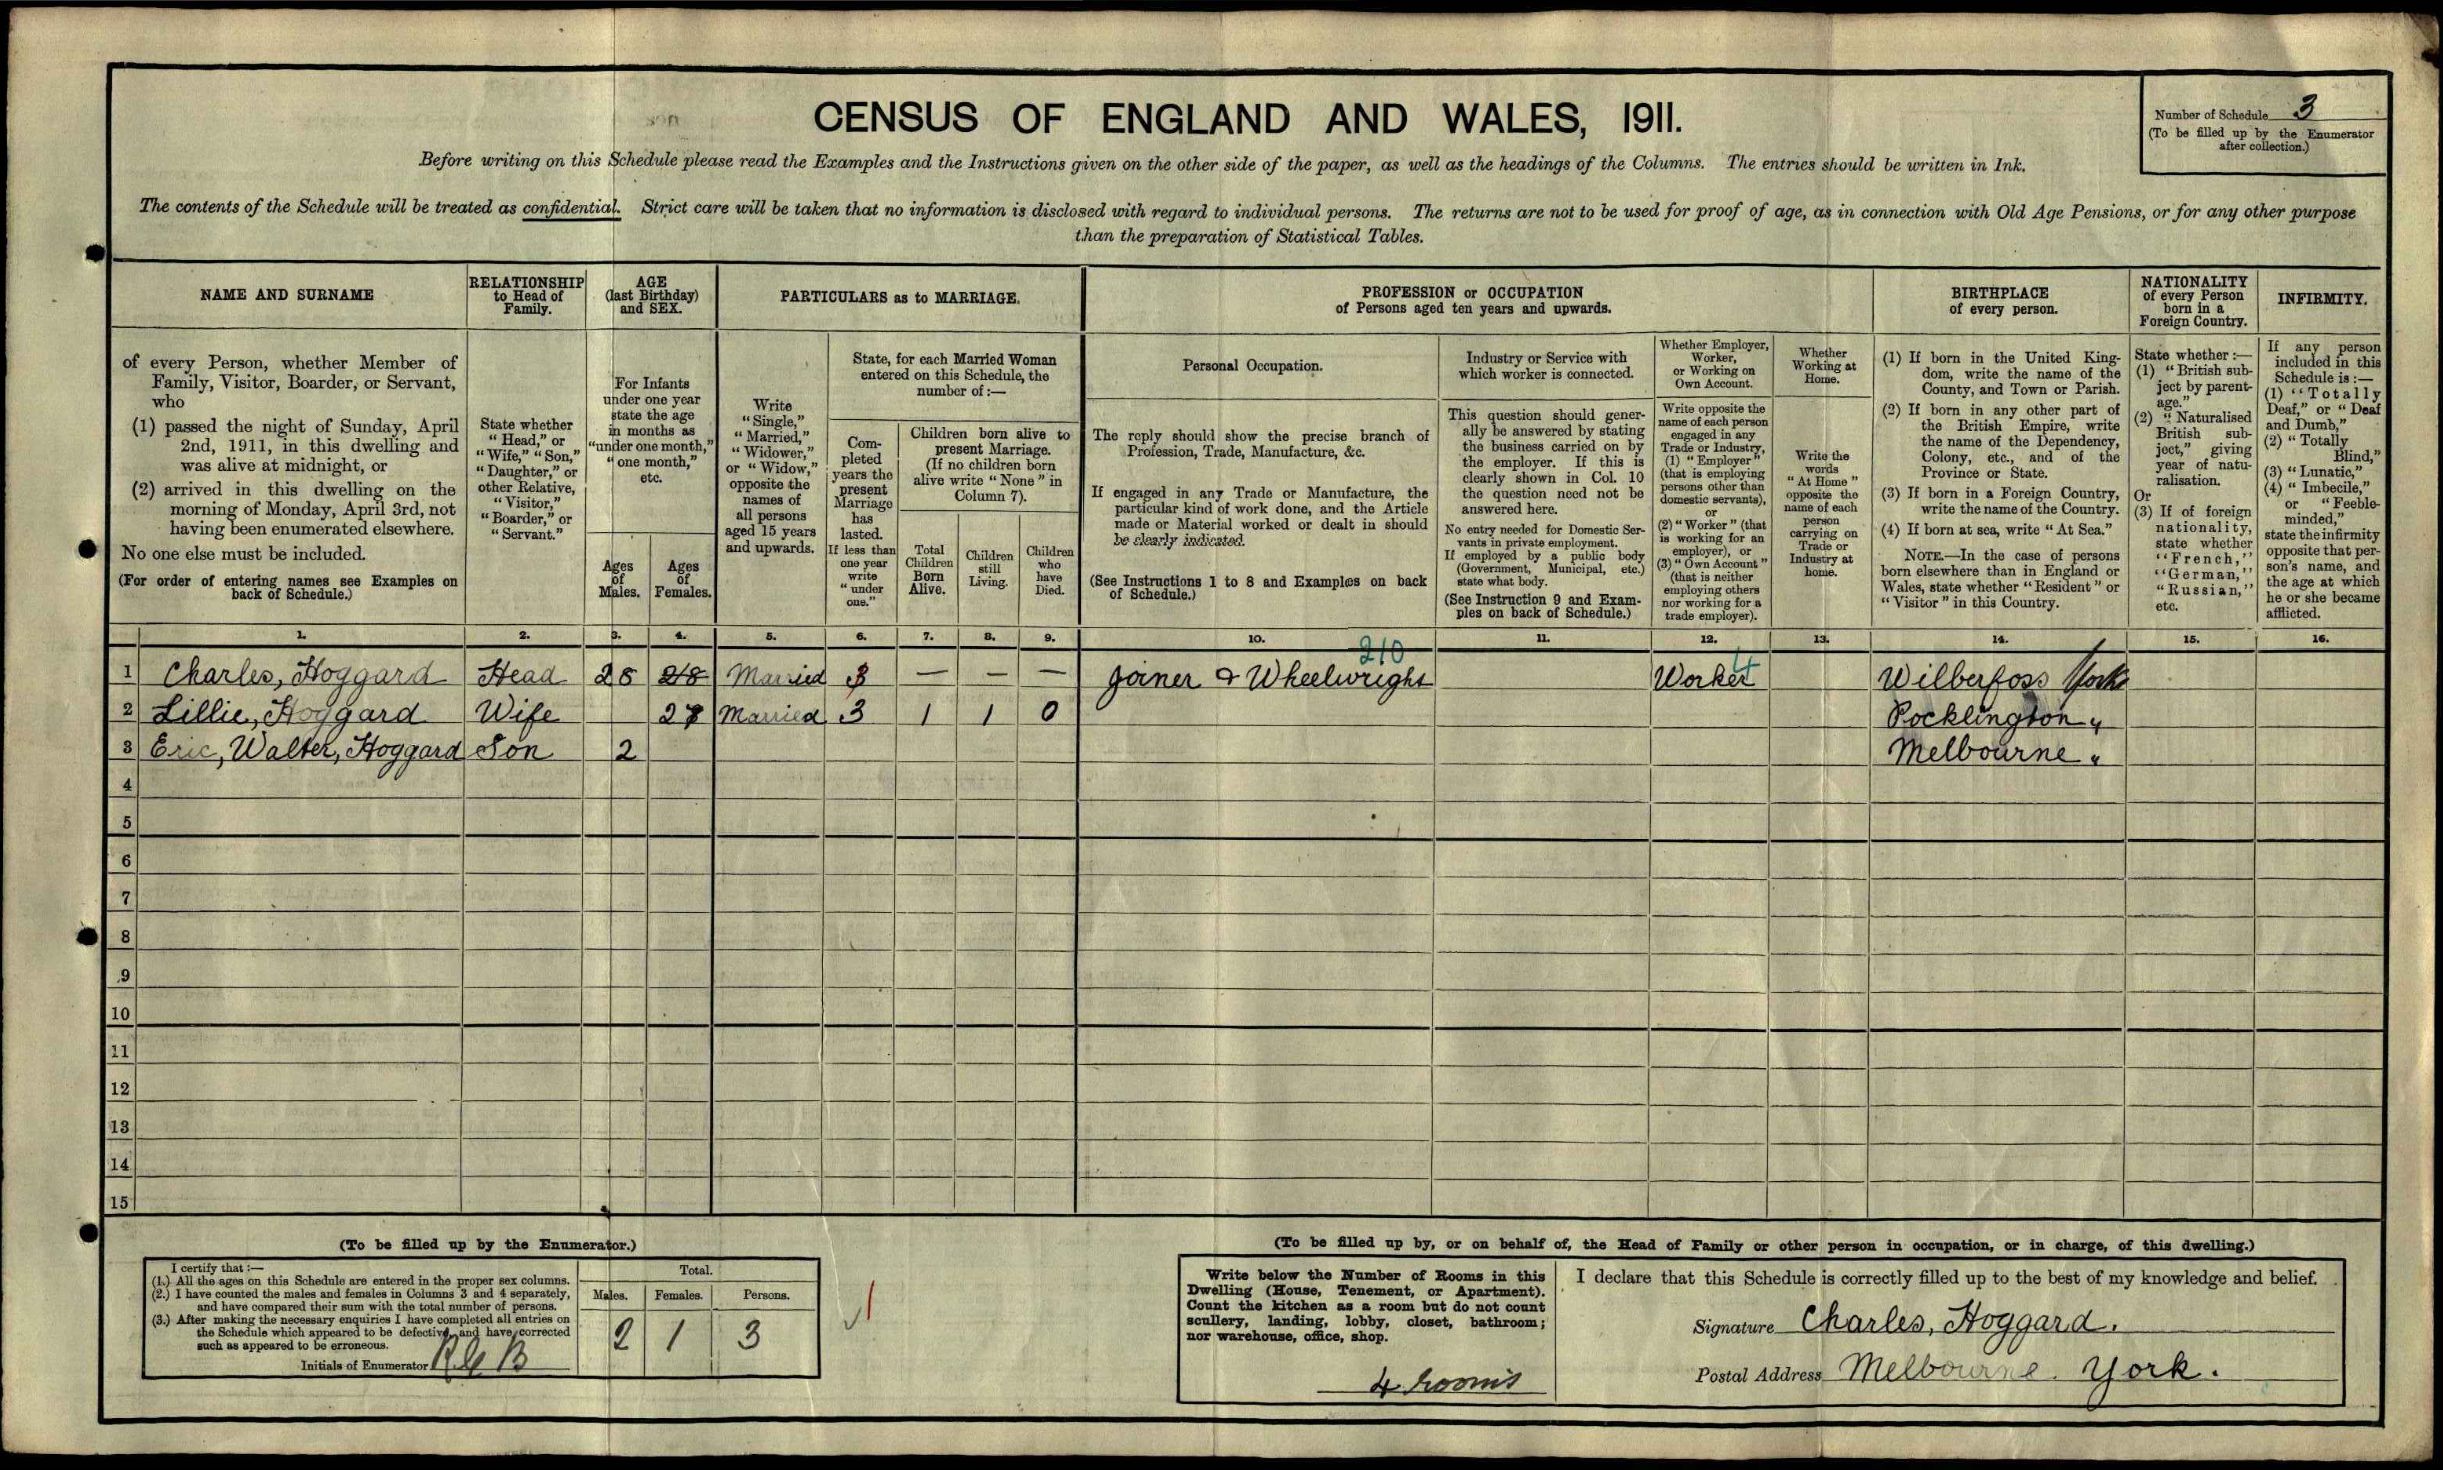 CENSUS OF ENGLAND AND WALES, 1911.
Number of Schedule 3
(To be filled up by the Enumerator
after collection.)
Before writing on this Schedule please read the Examples and the Instructions given on the other side of the paper, as well as the headings of the Columns. The entries should be written in Ink.
The contents of the Schedule will be treated as confidential. Strict care will be taken that no information is disclosed with regard to individual persons. The returns are not to be used for proof of age, as in connection with Old Age Pensions, or for any other purpose
than the preparation of Statistical Tables.
NAME AND SURNAME
of every Person, whether Member of
Family, Visitor, Boarder, or Servant,
who
(1) passed the night of Sunday, April
2nd, 1911, in this dwelling and
was alive at midnight, or
(2) arrived in this dwelling on the
morning of Monday, April 3rd, not
having been enumerated elsewhere.
No one else must be included.
(For order of entering names see Examples on
back of Schedule.)
RELATIONSHIP
to Head of
Family.
State whether
"Head," or
"Wife," "Son,"
"Daughter," or
other Relative,
"Visitor,"
"Boarder," or
"Servant."
AGE
(last Birthday)
and SEX.
For Infants
under one year
state the age
in months as
"under one month,"
"one month,"
etc.
Ages
of
Males.
Ages
of
Females.
PARTICULARS as to MARRIAGE.
Write
"Single,"
"Married,"
"Widower,"
or "Widow,"
opposite the
names of
all persons
aged 15 years
and upwards.
State, for each Married Woman
entered on this Schedule, the
number of :—
Com-
pleted
years the
present
Marriage
has
lasted.
If less than
one year
write
"under
one."
Children born alive to
present Marriage.
(If no children born
alive write "None" in
Column 7).
Total
Children
Born
Alive.
Children
still
Living.
Children
who
have
Died.
PROFESSION or OCCUPATION
of Persons aged ten years and upwards.
Personal Occupation.
The reply should show the precise branch of
Profession, Trade, Manufacture, &c.
If engaged in any Trade or Manufacture, the
particular kind of work done, and the Article
made or Material worked or dealt in should
be clearly indicated.
(See Instructions 1 to 8 and Examples on back
of Schedule.)
Industry or Service with
which worker is connected.
This question should gener-
ally be answered by stating
the business carried on by
the employer. If this is
clearly shown in Col. 10
the question need not be
answered here.
No entry needed for Domestic Ser-
vants in private employment.
If employed by a public body
(Government, Municipal, etc.)
state what body.
(See Instruction 9 and Exam-
ples on back of Schedule.)
Whether Employer,
Worker,
or Working on
Own Account.
Write opposite the
name of each person
engaged in any
Trade or Industry,
(1) "Employer"
(that is employing
persons other than
domestic servants),
or
(2) "Worker" (that
is working for an
employer), or
(3) "Own Account"
(that is neither
employing others
nor working for a
trade employer).
Whether
Working at
Home.
Write the
words
"At Home"
opposite the
name of each
person
carrying on
Trade or
Industry at
home.
BIRTHPLACE
of every person.
(1) If born in the United King-
dom, write the name of the
County, and Town or Parish.
(2) If born in any other part of
the British Empire, write
the name of the Dependency,
Colony, etc., and of the
Province or State.
(3) If born in a Foreign Country,
write the name of the Country.
(4) If born at sea, write "At Sea."
NOTE.—In the case of persons
born elsewhere than in England or
Wales, state whether "Resident" or
"Visitor" in this Country.
NATIONALITY
of every Person
born in a
Foreign Country.
State whether :—
(1) "British sub-
ject by parent-
age."
(2) "Naturalised
British sub-
ject," giving
year of natu-
ralisation.
Or
(3) If of foreign
nationality,
state whether
"French,"
"German,"
"Russian,"
etc.
INFIRMITY.
If any person
included in this
Schedule is :—
(1) "Totally
Deaf," or "Deaf
and Dumb,"
(2) "Totally
Blind,"
(3) "Lunatic,"
(4) "Imbecile,"
or "Feeble-
minded,"
state the infirmity
opposite that per-
son's name, and
the age at which
he or she became
afflicted.
1. 2. 3. 4. 5. 6. 7. 8. 9. 10. 11. 12. 13. 14. 15. 16.
210
1 Charles, Hoggard Head 28 28 Married 3 — — — Joiner & Wheelwright Worker Wilberfoss Yorks
2 Lillie, Hoggard Wife 27 Married 3 1 1 0 Pocklington "
3 Eric, Walter, Hoggard Son 2 Melbourne "
4
5
6
7
8
9
10
11
12
13
14
15
(To be filled up by the Enumerator.)
I certify that :—
(1.) All the ages on this Schedule are entered in the proper sex columns.
(2.) I have counted the males and females in Columns 3 and 4 separately,
and have compared their sum with the total number of persons.
(3.) After making the necessary enquiries I have completed all entries on
the Schedule which appeared to be defective, and have corrected
such as appeared to be erroneous.
Initials of Enumerator
Total.
Males. Females. Persons.
2 1 3
(To be filled up by, or on behalf of, the Head of Family or other person in occupation, or in charge, of this dwelling.)
Write below the Number of Rooms in this
Dwelling (House, Tenement, or Apartment).
Count the kitchen as a room but do not count
scullery, landing, lobby, closet, bathroom;
nor warehouse, office, shop.
4 rooms
I declare that this Schedule is correctly filled up to the best of my knowledge and belief.
Signature Charles, Hoggard.
Postal Address Melbourne. York.